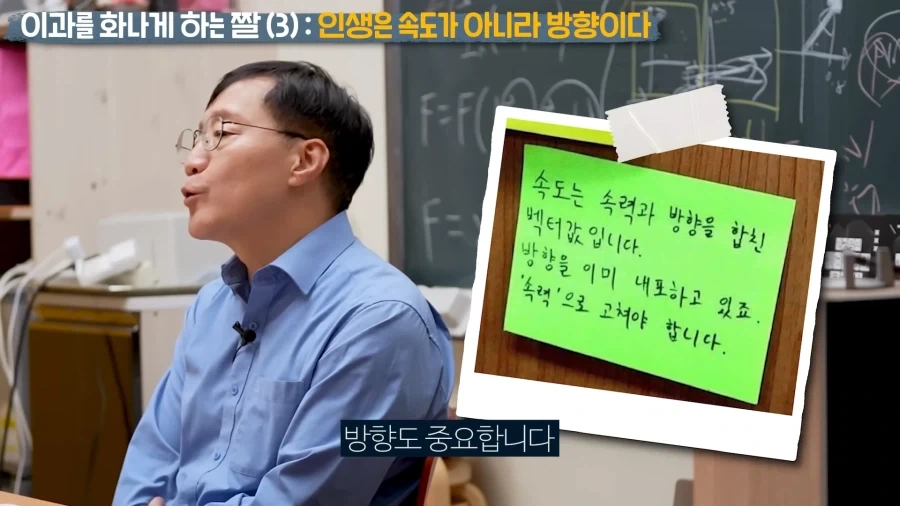 이과를 화나게 하는 짤 (3) : 인생은 속도가 아니라 방향이다
속도는 속력과 방향을 합친
벡터값입니다.
방향을 이미 내포하고 있죠.
'속력'으로 고쳐야 합니다.
F=F(
F=
방향도 중요합니다